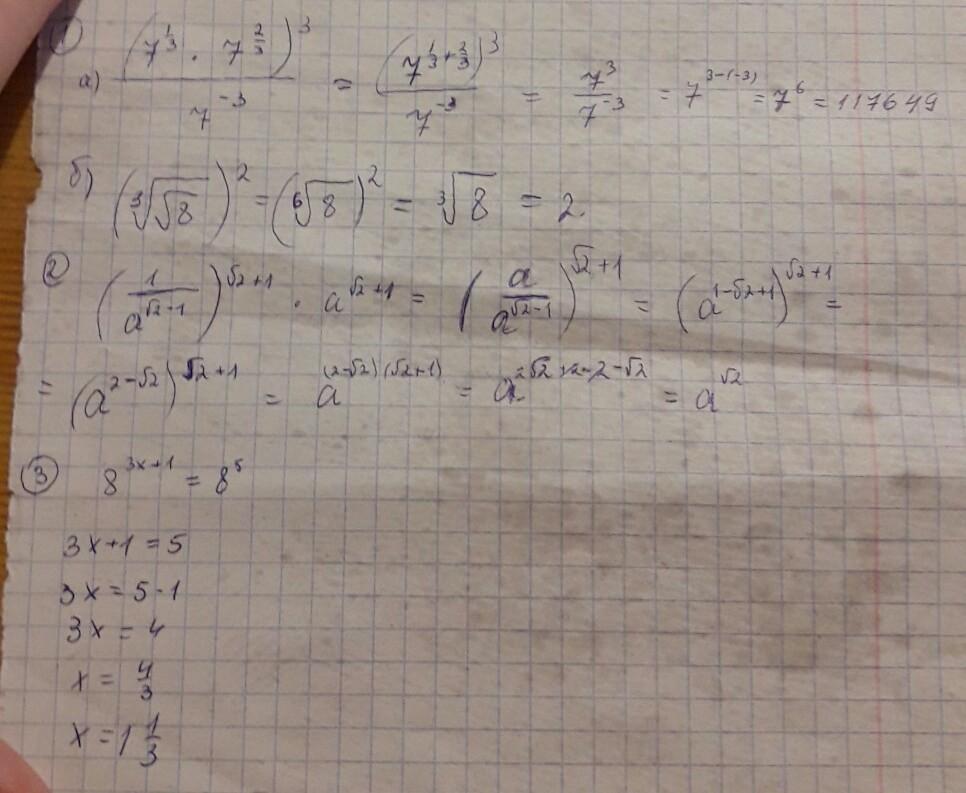 ① а) (7^{1/3} · 7^{2/3})^3 / 7^{-3} = (7^{1/3+2/3})^3 / 7^{-3} = 7^3 / 7^{-3} = 7^{3-(-3)} = 7^6 = 117649
б) (∛√8)^2 = (⁶√8)^2 = ∛8 = 2.
② (1 / a^{√2-1})^{√2+1} · a^{√2+1} = (a / a^{√2-1})^{√2+1} = (a^{1-√2+1})^{√2+1} =
= (a^{2-√2})^{√2+1} = a^{(2-√2)(√2+1)} = a^{2√2+2-2-√2} = a^{√2}
③ 8^{3x+1} = 8^5
3x+1 = 5
3x = 5-1
3x = 4
x = 4/3
x = 1 1/3